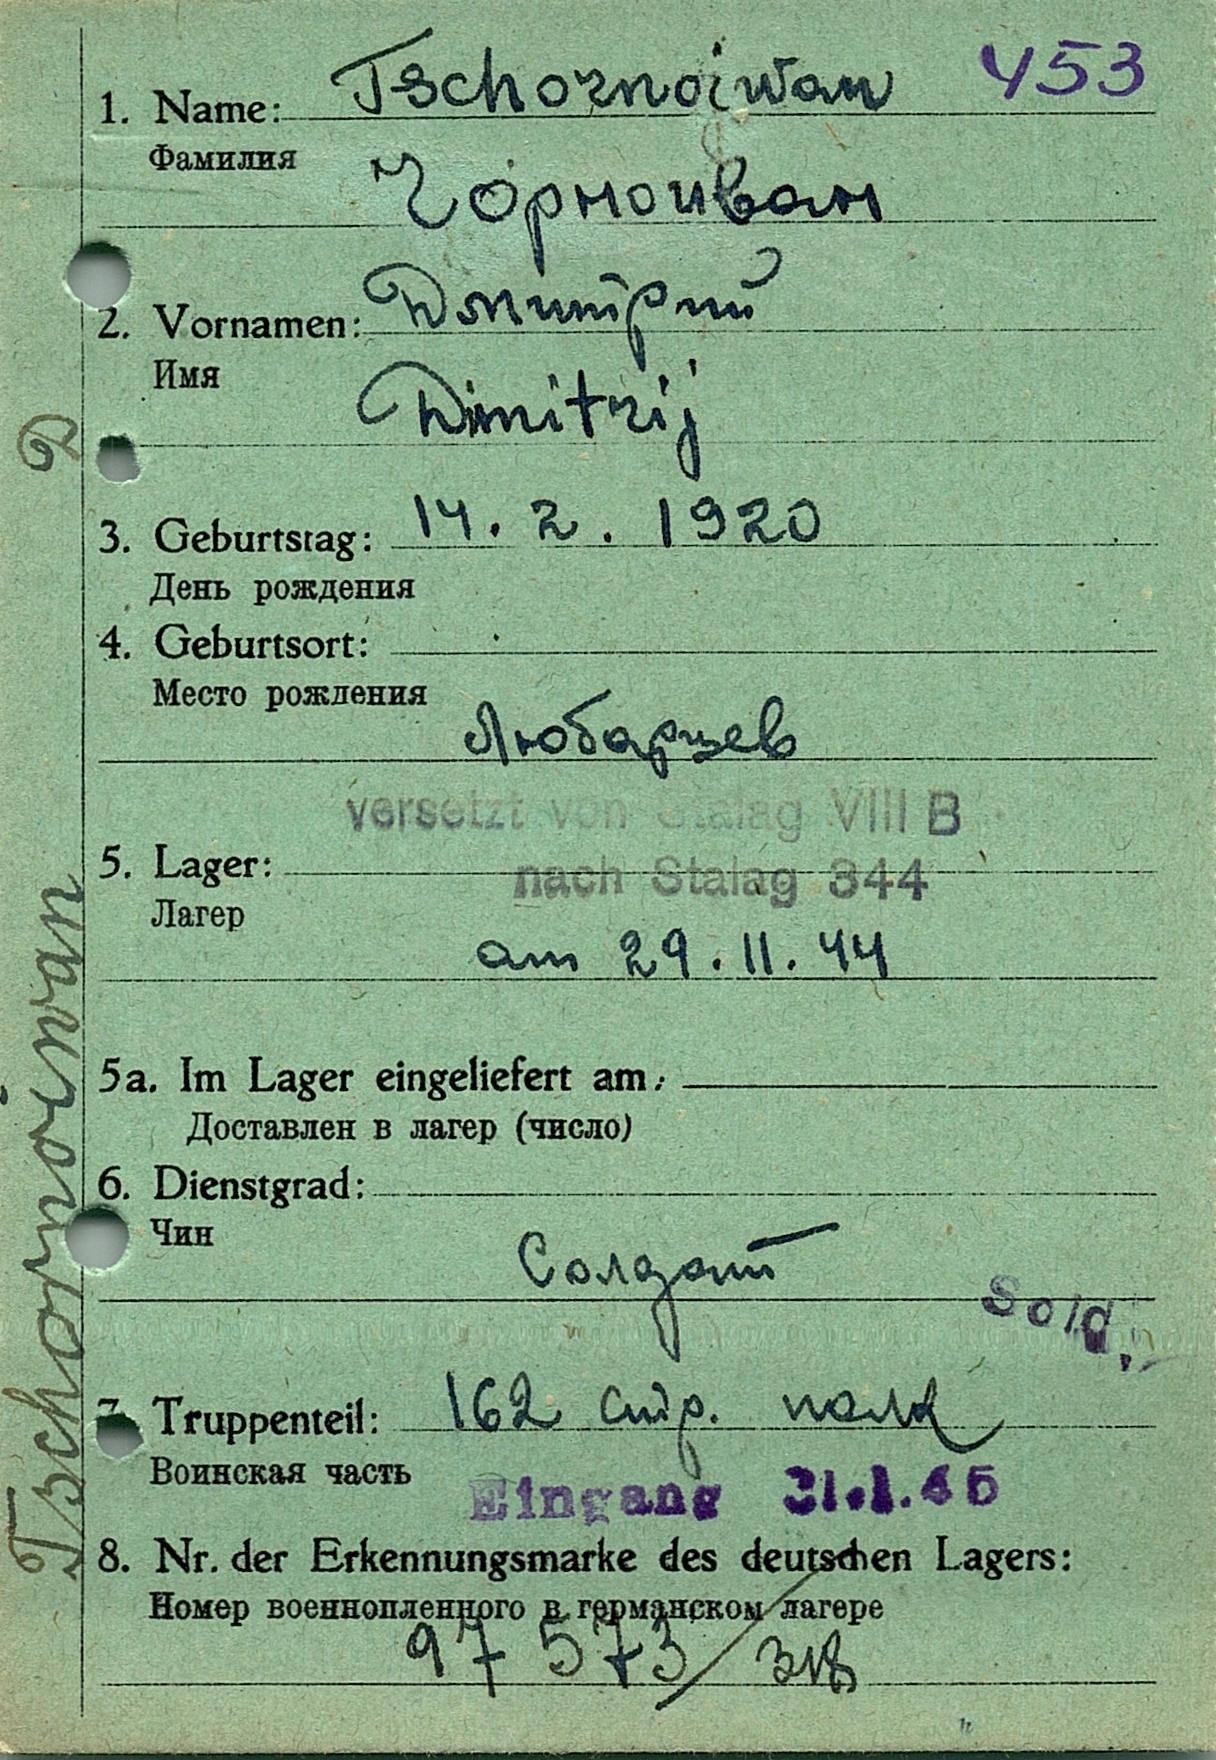 453
1. Name: Tschornoiwan
Фамилия
Чорноиван
2. Vornamen: Дмитрий
Имя
Dimitrij
3. Geburtstag: 14. 2. 1920
День рождения
4. Geburtsort:
Место рождения
Любарцев
versetzt von Stalag VIII B
5. Lager: nach Stalag 344
Лагер
am 29. 11. 44
5a. Im Lager eingeliefert am:
Доставлен в лагер (число)
6. Dienstgrad:
Чин
Солдат
Sold.
7. Truppenteil: 162 стр. полк
Воинская часть
Eingang 31.1.45
8. Nr. der Erkennungsmarke des deutschen Lagers:
Номер военнопленного в германском лагере
97 573 /
Tschornoiwan